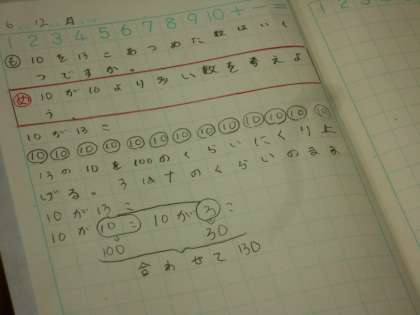 6.12.月
1 2 3 4 5 6 7 8 9 10 + - =
も 10を13こあつめた数はいく
つですか。
め 10が10より多い数を考えよ
う。
10が13こ
⑩⑩⑩⑩⑩⑩⑩⑩⑩⑩⑩⑩⑩
13の10を100のくらいにくり上
げる。3は十のくらいのまま
10が13こ
10が10こ 10が3こ
100 30
合わせて130